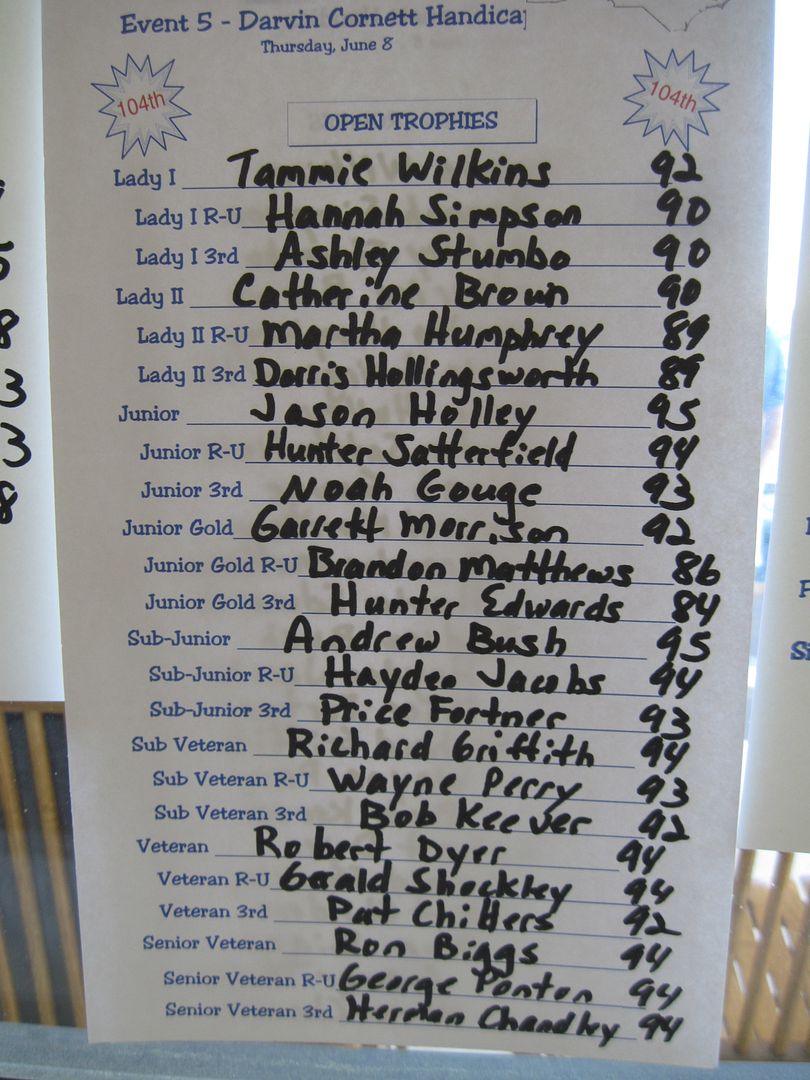 Event 5 - Darvin Cornett Handicap
Thursday, June 8
104th 104th
OPEN TROPHIES
Lady I Tammie Wilkins 92
Lady I R-U Hannah Simpson 90
Lady I 3rd Ashley Stumbo 90
Lady II Catherine Brown 90
Lady II R-U Martha Humphrey 89
Lady II 3rd Dorris Hollingsworth 89
Junior Jason Holley 95
Junior R-U Hunter Satterfield 94
Junior 3rd Noah Gouge 93
Junior Gold Garrett Morrison 92
Junior Gold R-U Brandon Matthews 86
Junior Gold 3rd Hunter Edwards 84
Sub-Junior Andrew Bush 95
Sub-Junior R-U Hayden Jacobs 94
Sub-Junior 3rd Price Fortner 93
Sub Veteran Richard Griffith 94
Sub Veteran R-U Wayne Perry 93
Sub Veteran 3rd Bob Keever 92
Veteran Robert Dyer 94
Veteran R-U Gerald Shockley 94
Veteran 3rd Pat Chillers 92
Senior Veteran Ron Biggs 94
Senior Veteran R-U George Ponton 94
Senior Veteran 3rd Herman Chandley 94